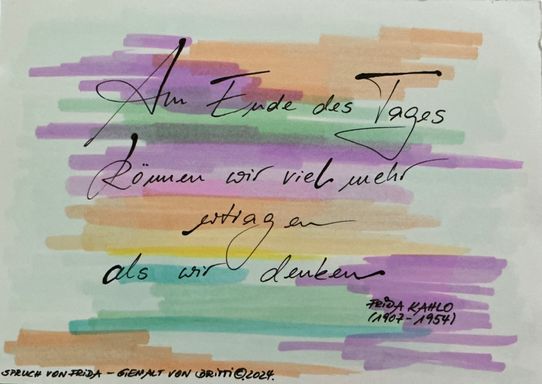 Am Ende des Tages
können wir viel mehr
ertragen
als wir denken
FRIDA KAHLO
(1907-1954)
SPRUCH VON FRIDA – GEMALT VON BRITTI © 2024.